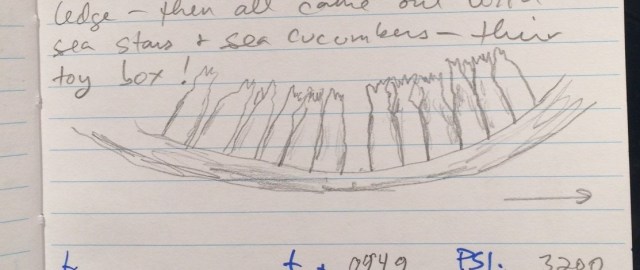 ledge - then all came out with
sea stars + sea cucumbers - their
toy box!
t. 0949 PSI. 3200